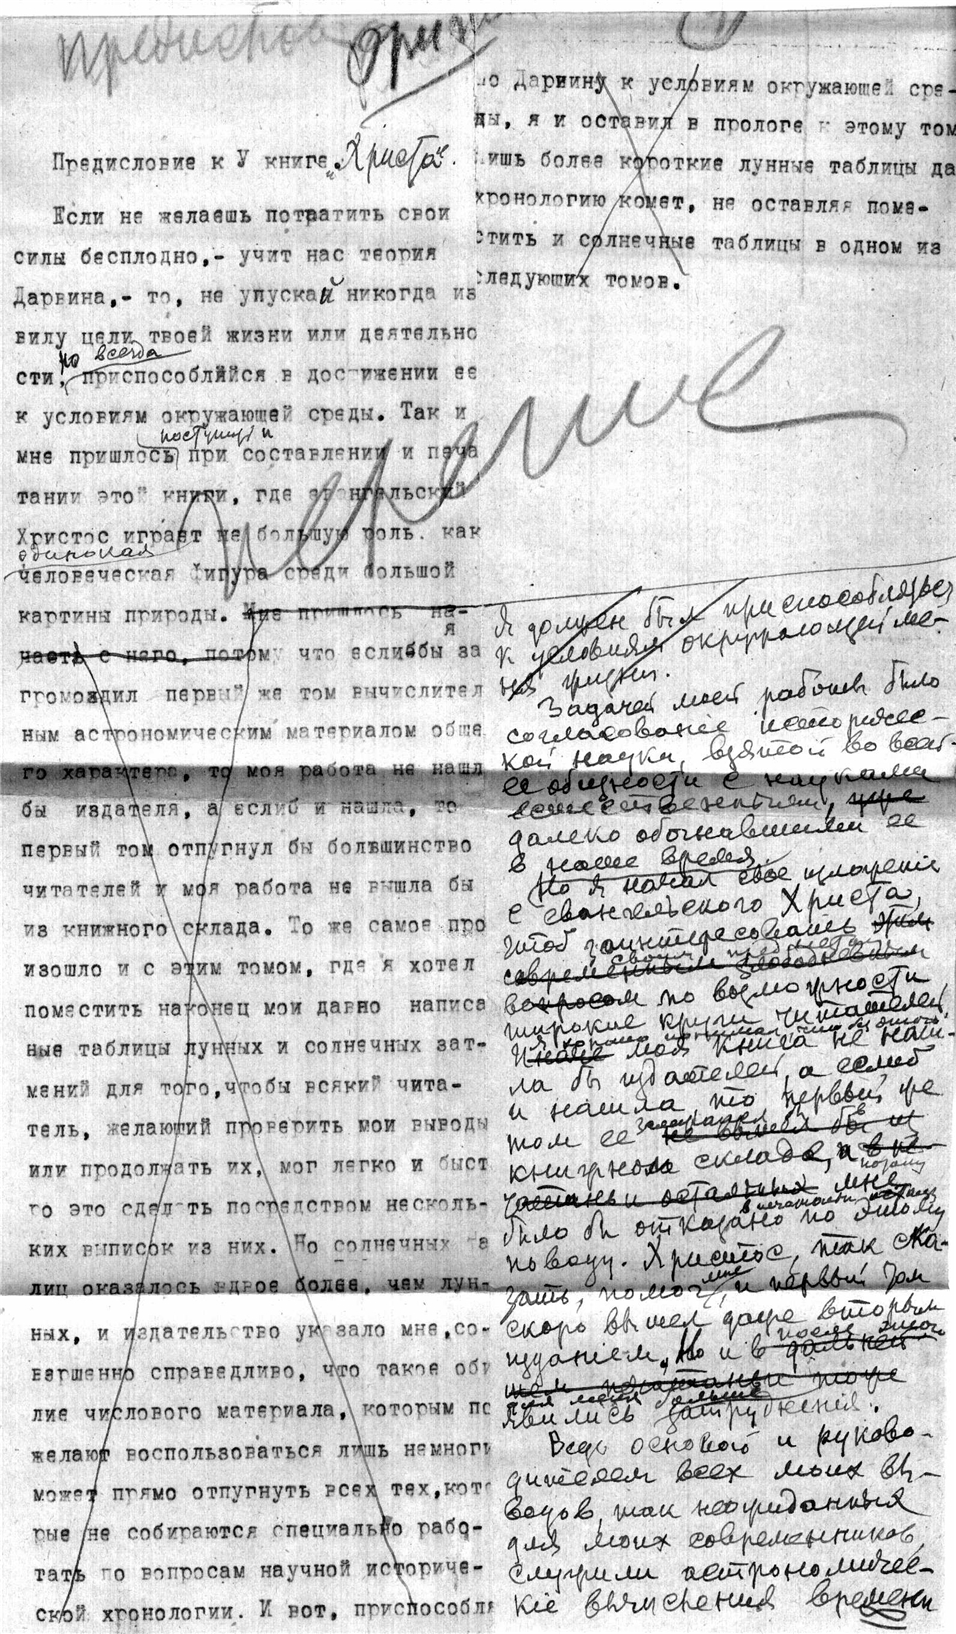 Предислов
Предисловие к У книге „Христа".
Если не желаешь потратить свои
силы бесплодно,- учит нас теория
Дарвина,- то, не упускай никогда из
виду цели твоей жизни или деятельно
но всегда
сти, приспособляйся в достижении ее
к условиям окружающей среды. Так и
поступить
мне пришлось при составлении и печа
тании этой книги, где евангельский
Христос играет не большую роль. как
одинокая
человеческая фигура среди большой
картины природы. Мне пришлось на-
чать с него, потому что еслибы я за
громоздил первый же том вычислител
ным астрономическим материалом обще
го характера, то моя работа не нашл
бы издателя, а еслиб и нашла, то
первый том отпугнул бы большинство
читателей и моя работа не вышла бы
из книжного склада. То же самое про
изошло и с этим томом, где я хотел
поместить наконец мои давно написа
ные таблицы лунных и солнечных зат-
мений для того,чтобы всякий чита-
тель, желающий проверить мои выводы
или продолжать их, мог легко и быст
ро это сделать посредством несколь-
ких выписок из них. Но солнечных та
лиц оказалось вдвое более, чем лун-
ных, и издательство указало мне,со-
вершенно справедливо, что такое оби
лие числового материала, которым по
желают воспользоваться лишь немноги
может прямо отпугнуть всех тех,кото
рые не собираются специально рабо-
тать по вопросам научной историче-
ской хронологии. И вот, приспособля
по Дарвину к условиям окружающей сре-
ды, я и оставил в прологе к этому том
лишь более короткие лунные таблицы да
хронологию комет, не оставляя поме-
стить и солнечные таблицы в одном из
следующих томов.
Я должен был приспособляться
к условиям окружающей ме-
ня жизни.
Задачей моей работы было
согласование историчес-
кой науки, взятой во всей
ее общности с науками
естественными,
далеко обогнавшими ее
в наше время.
Но я начал свое изложение
с евангельского Христа,
чтоб заинтересовать
своим предметом
современным злободневным
вопросом по возможности
широкие круги читателей,
Иначе моя книга не наш-
ла бы издателей, а еслиб
и нашла то первый же
том ее
книжном складе, а
было бы отказано по этому
поводу. Христос, так ска-
зать, помог мне и первый том
скоро вышел даже вторым
изданием. Но и в
после этого
явились затруднения.
Ведь основой и руково-
дителем всех моих вы-
водов, так неожиданных
для моих современников,
служили астрономичес-
кие вычисления времени